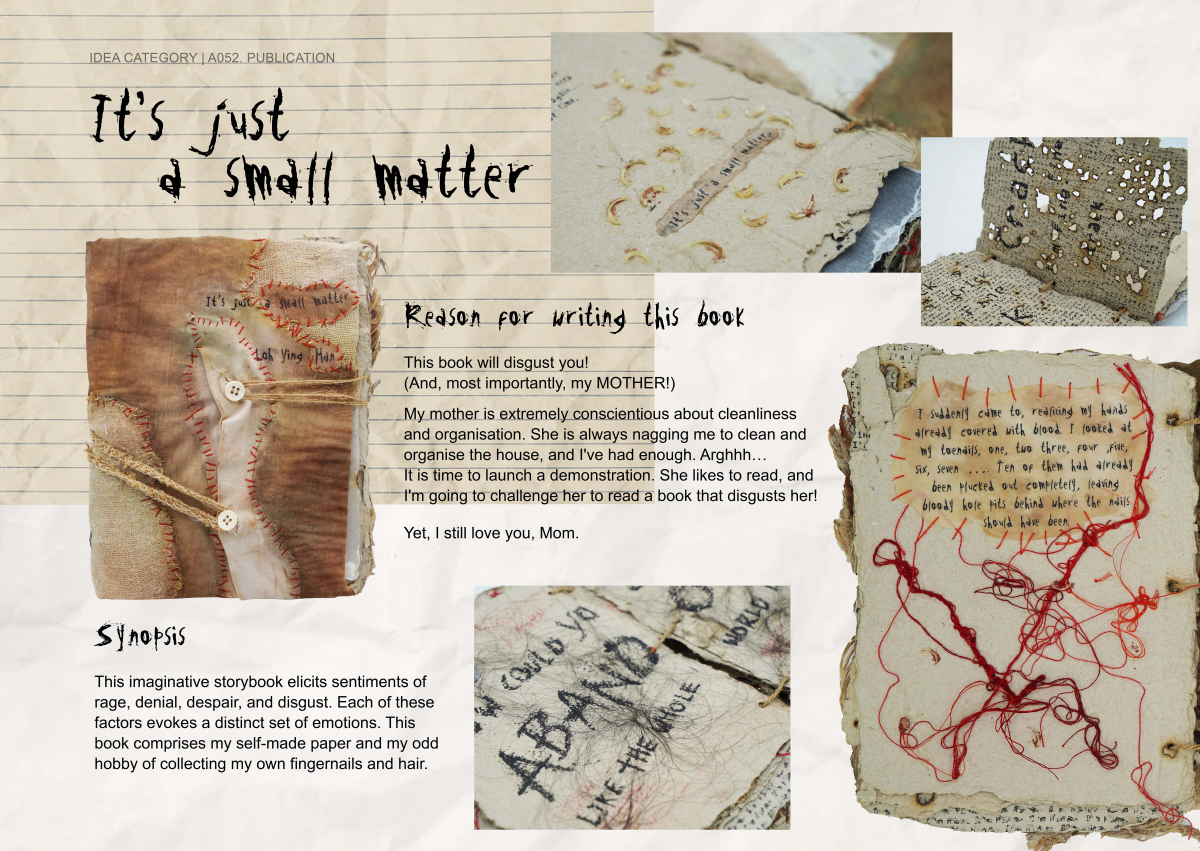 IDEA CATEGORY | A052. PUBLICATION
It's just
a small matter
It's just a small matter
It's just a small matter
Loh Ying Han
Reason for writing this book
This book will disgust you!
(And, most importantly, my MOTHER!)
My mother is extremely conscientious about cleanliness
and organisation. She is always nagging me to clean and
organise the house, and I've had enough. Arghhh…
It is time to launch a demonstration. She likes to read, and
I'm going to challenge her to read a book that disgusts her!
Yet, I still love you, Mom.
I suddenly came to, realising my hands
already covered with blood I looked at
my toenails, one, two three, four ,five,
six, seven .... Ten of them had already
been plucked out completely, leaving
bloody hole pits behind where the nails
should have been
Synopsis
This imaginative storybook elicits sentiments of
rage, denial, despair, and disgust. Each of these
factors evokes a distinct set of emotions. This
book comprises my self-made paper and my odd
hobby of collecting my own fingernails and hair.
COULD YO
ABAND
LIKE THE WHOLE
WORLD